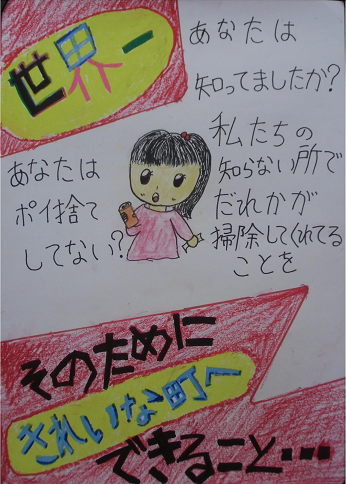 世界一
あなたは
知ってましたか?
私たちの
知らない所で
だれかが
掃除してくれてる
ことを
あなたは
ポイ捨て
してない?
そのために
きれいな町へ
できること・・・